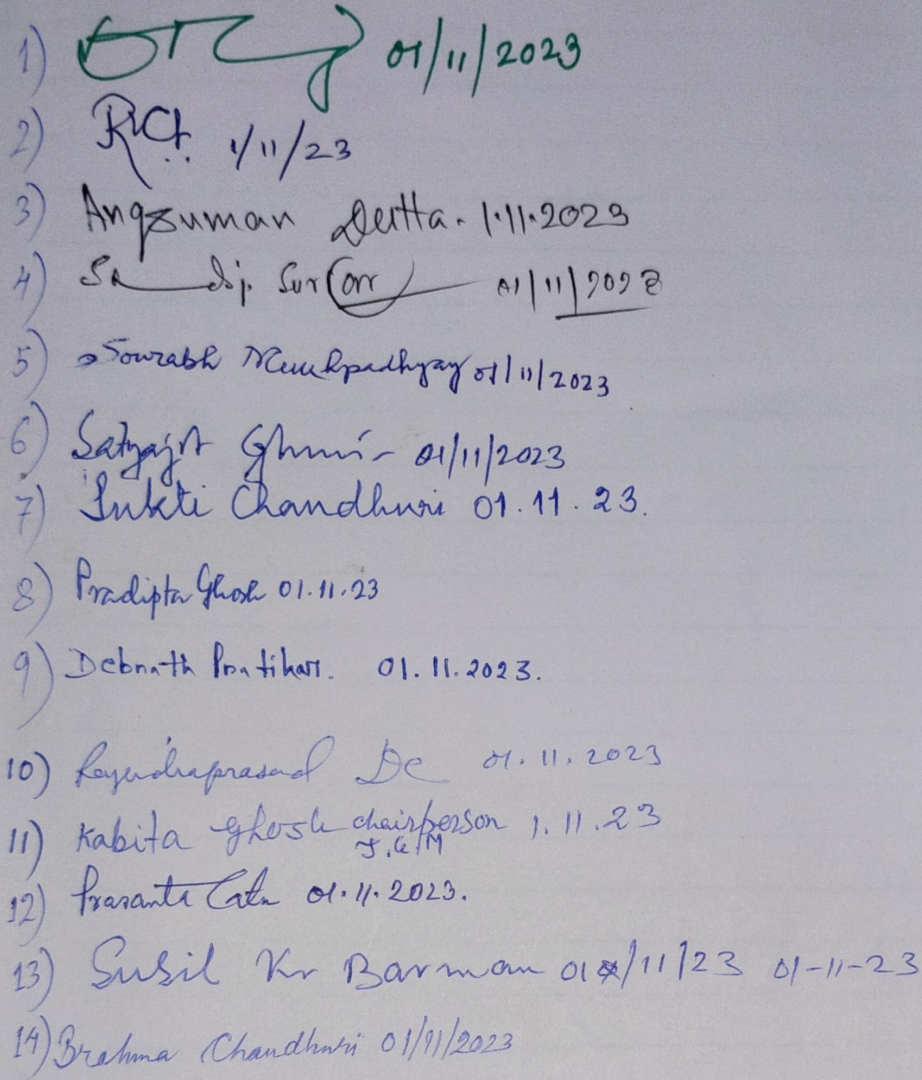 1) 01/11/2023
2) 1/11/23
3) Angsuman Dutta - 1.11.2023
4) 01/11/2023
5) Sourabh Mukhpadhyay 01/11/2023
6) Satyajit 01/11/2023
7) Sukti Chandhuri 01.11.23.
8) Pradipta Ghosh 01.11.23
9) Debnath Pratihar. 01.11.2023.
10) Rajendraprasad De 01.11.2023
11) Kabita Ghosh chairperson 1.11.23
12) Prasanta 01.11.2023.
13) Susil Kr Barman 01/11/23 01-11-23
14) Brahma Chandhuri 01/11/2023